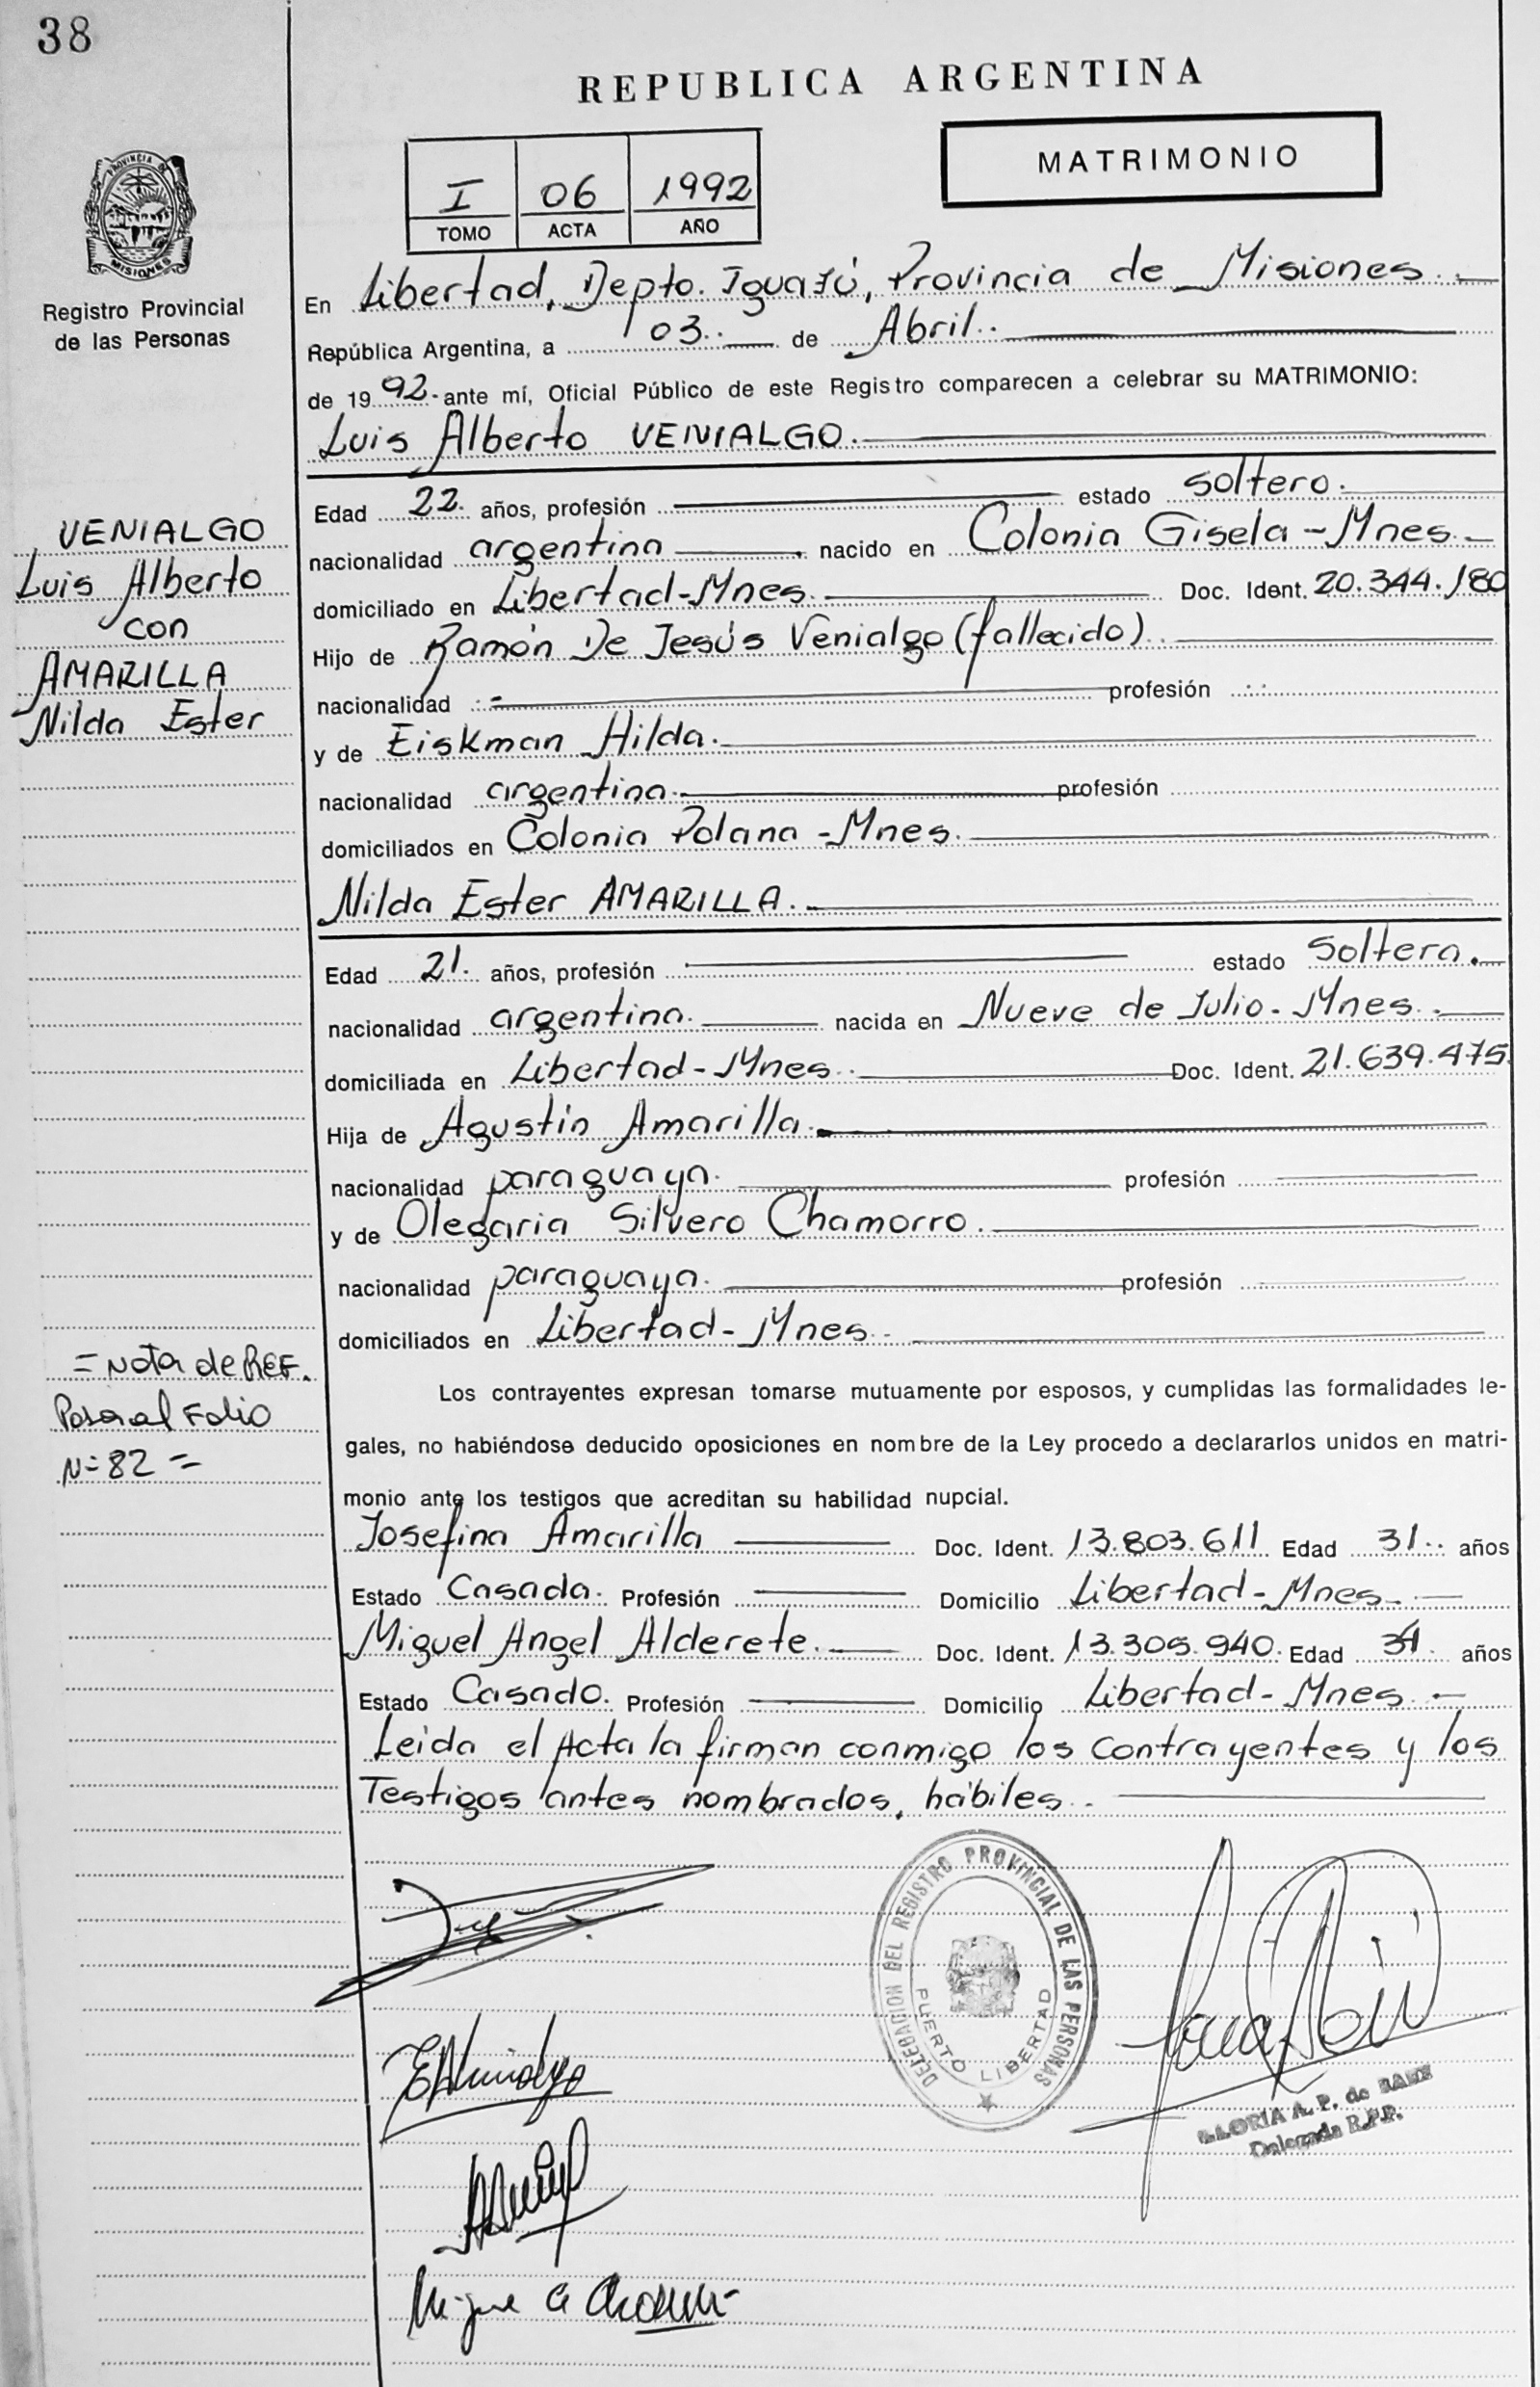 38
REPUBLICA ARGENTINA
MATRIMONIO
I 06 1992
TOMO ACTA AÑO
PROVINCIA DE MISIONES
Registro Provincial
de las Personas
En Libertad, Depto. Iguazú, Provincia de Misiones.
República Argentina, a 03. de Abril.
de 1992 ante mí, Oficial Público de este Registro comparecen a celebrar su MATRIMONIO:
Luis Alberto VENIALGO.
VENIALGO
Luis Alberto
con
AMARILLA
Nilda Ester
Edad 22. años, profesión estado soltero.
nacionalidad argentina nacido en Colonia Gisela - Mnes.
domiciliado en Libertad - Mnes. Doc. Ident. 20.344.180
Hijo de Ramón De Jesús Venialgo (fallecido).
nacionalidad profesión
y de Eiskman Hilda.
nacionalidad argentina. profesión
domiciliados en Colonia Polana - Mnes.
Nilda Ester AMARILLA.
Edad 21. años, profesión estado Soltera.
nacionalidad argentina. nacida en Nueve de Julio - Mnes.
domiciliada en Libertad - Mnes. Doc. Ident. 21.639.475.
Hija de Agustín Amarilla.
nacionalidad paraguaya. profesión
y de Olegaria Silvero Chamorro.
nacionalidad paraguaya. profesión
domiciliados en Libertad - Mnes.
= Nota de REF.
Pasa al Folio
N= 82 =
Los contrayentes expresan tomarse mutuamente por esposos, y cumplidas las formalidades le-
gales, no habiéndose deducido oposiciones en nombre de la Ley procedo a declararlos unidos en matri-
monio ante los testigos que acreditan su habilidad nupcial.
Josefina Amarilla Doc. Ident. 13.803.611 Edad 31.. años
Estado Casada. Profesión Domicilio Libertad - Mnes.
Miguel Angel Alderete. Doc. Ident. 13.305.940. Edad años
Estado Casado. Profesión Domicilio Libertad - Mnes.
Leída el Acta la firman conmigo los contrayentes y los
Testigos antes nombrados, hábiles.
DELEGACION DEL REGISTRO PROVINCIAL DE LAS PERSONAS
PUERTO LIBERTAD
GLORIA A. P. de BAEZ
Delegada R.P.P.